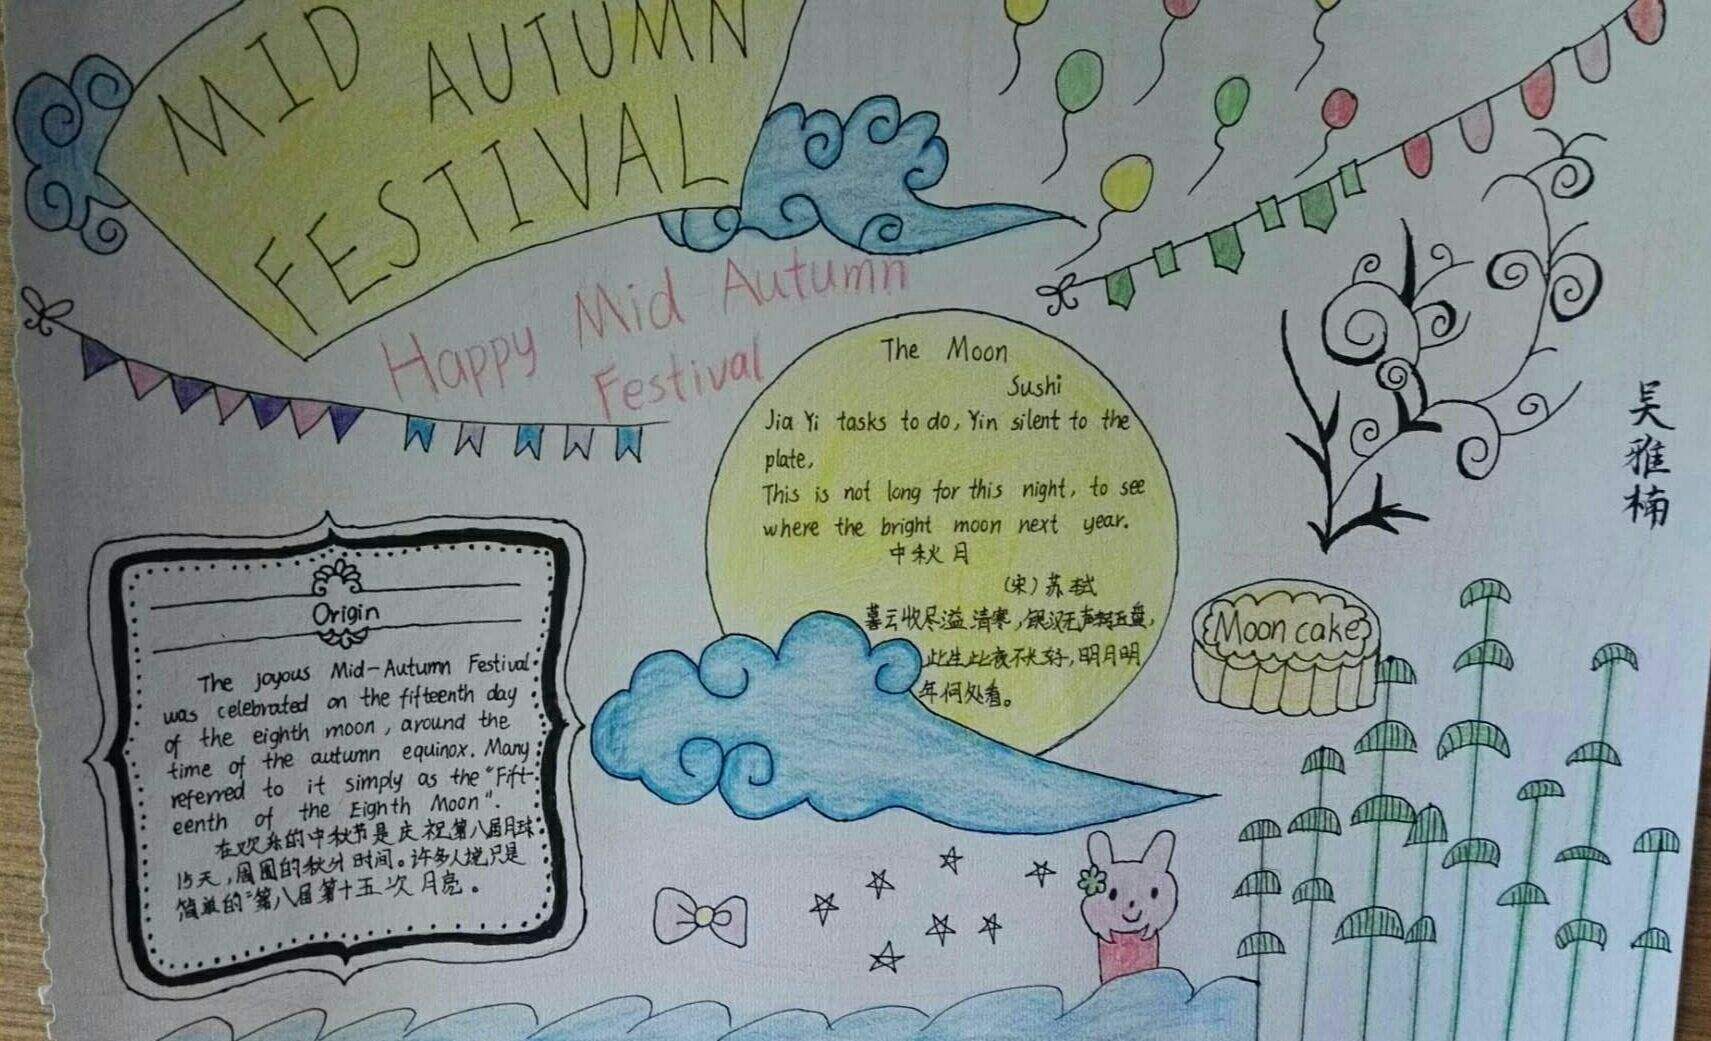 MID AUTUMN
FESTIVAL
Happy Mid Autumn
Festival
The Moon
Sushi
Jia Yi tasks to do, Yin silent to the
plate,
This is not long for this night, to see
where the bright moon next year.
中秋月
（宋）苏轼
暮云收尽溢清寒，银汉无声转玉盘，
此生此夜不长好，明月明
年何处看。
吴雅楠
Moon cake
Origin
The joyous Mid-Autumn Festival
was celebrated on the fifteenth day
of the eighth moon, around the
time of the autumn equinox. Many
referred to it simply as the "Fift-
eenth of the Eighth Moon".
在欢乐的中秋节是庆祝第八届月球
15天，周围的秋分时间。许多人境只是
简单的"第八届第十五次月亮。